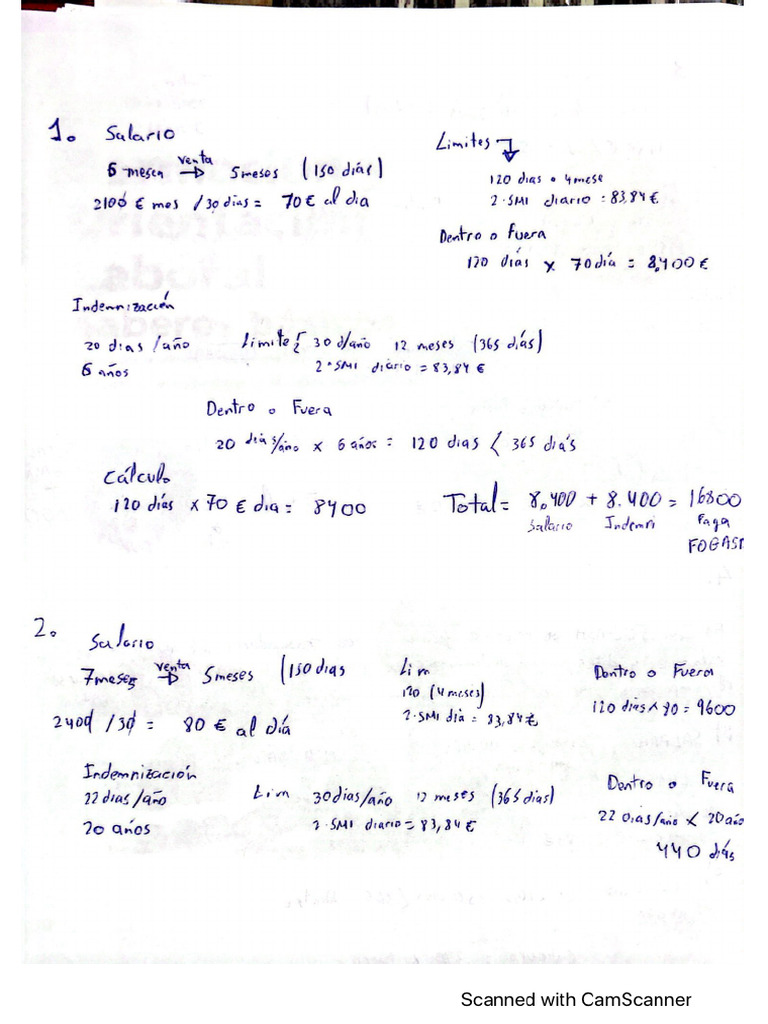 1. Salario
6 mesen venta → 5 meses (150 días)
2100 € mos /30 dias = 70 € al dia
Limites
120 dias o 4 mese
2·SMI diario = 83,84 €
Dentro o Fuera
120 días x 70 día = 8,400 €
Indemnización
20 dias /año
6 años
Limite { 30 d/año 12 meses (365 días)
2·SMI diario = 83,84 €
Dentro o Fuera
20 dias/año x 6 años = 120 dias < 365 dia's
Cálculo
120 días x 70 € dia = 8400
Total = 8.400 + 8.400 = 16800
Salario Indemni Paga
FOGASA
2. Salario
7 meses venta → 5 meses (150 dias
2400 /30 = 80 € al día
Lim
120 (4 meses)
2·SMI dia = 83,84 €
Dentro o Fuera
120 dias x 80 = 9600
Indemnización
22 dias/año
20 años
Lim 30 dias/año 12 meses (365 dias)
2·SMI diario = 83,84 €
Dentro o Fuera
22 dias/año x 20 año
440 días
Scanned with CamScanner